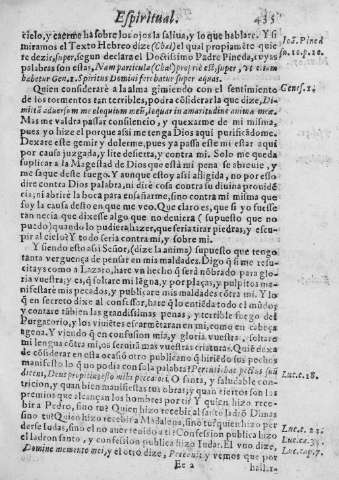 Espiritual. 435
cielo, y caerme ha sobre los ojos la saliua, y lo que hablare. Y si
miramos el Texto Hebreo dize (Chal) el qual propiamēte quie
re dezir, super, segun declara el Doctissimo Padre Pineda, cuyas
palabras son estas, Nam particula (Chal) propriè est, super,
habetur Gen. 1. Spiritus Domini ferebatur super aquas.
Quien considerarè a la alma gimiendo con el sentimiento
de los tormentos tan terribles, podra cōsiderar la que dize, Di-
mittā aduersum me eloquium meū, loquar in amaritudine animæ meæ.
Mas me valdra passar consilencio, y quexarme de mi misma,
pues yo hize el porque assi me tenga Dios aqui purificādome.
Dexare este gemir y dolerme, pues ya passè este mal estar aqui
por causa juzgada, y lite desierta, y contra mi. Solo me queda
suplicar a la Magestad de Dios que està mi pena se abreuie, y
me saque deste fuego. Y aunque estoy assi afligida, no por esso
dire contra Dios palabra, ni dirè cosa contra su diuina prouidē
cia, ni abrirè la boca para infamarme, sino contra mi misma que
fuy la causa desto en que me veo. Que claro es, que si yo fuesse
tan necia que dixesse algo que no deuiera (supuesto que no
puedo) quando lo pudiera hazer, que seria tirar piedras, y escu-
pir al cielo: Y todo seria contra mi, y sobre mi.
Y siendo esto assi Señor, (dize la anima) supuesto que tengo
tanta verguença de pensar en mis maldades. Digo q̄ si me resu-
citays como a Lazaro, hare vn hecho q̄ serà nōbrado para glo-
ria vuestra; y es, q̄ soltare mi lēgua, y por plaças, y pulpitos ma-
nifestare mis pecados, y publicare mis maldades cōtra mi. Y lo
q̄ en secreto dixe al confessor, hare q̄ lo entiēda todo el mūdo
y contare tābien las grandissimas penas, y terrible fuego del
Purgatorio, y los viuiētes escarmētaran en mi, como en cabeça
agena. Y viendo q̄ en confusion mia, y gloria vuestra, soltare
mi lengua cōtra mi, os seruirā mas vuestras criaturas. Què dexa
de cōsiderar en esta ocasiō otro publicano q̄ hiriēdo sus pechos
manifestò lo que podia con sola palabra? Percutiebat pectus suū
dicens, Deus propitius esto mihi peccatori. O santa, y saludable con-
tricion, y quan bien manifiestas tus obras, y quan ciertos son los
premios que alcançan los hombres por ti? Y quien hizo rece-
bir a Pedro, sino tu? Quien hizo recebir al santo ladrō Dimas
sino tu? Quien hizo recebir a Madalena, sino tu? quien hizo per
derse Iudas, sino el no auer tenido a ti? Confession publica hizo
el ladron santo, y confession publica hizo Iudas. El vno dize,
Domine memento mei, y el otro dize, Peccaui, y vemos por
Ee 2
Ios. Pined
Genes. 1.
Luc. c. 18.
Luc. c. 23.
Luc. cap. 7.